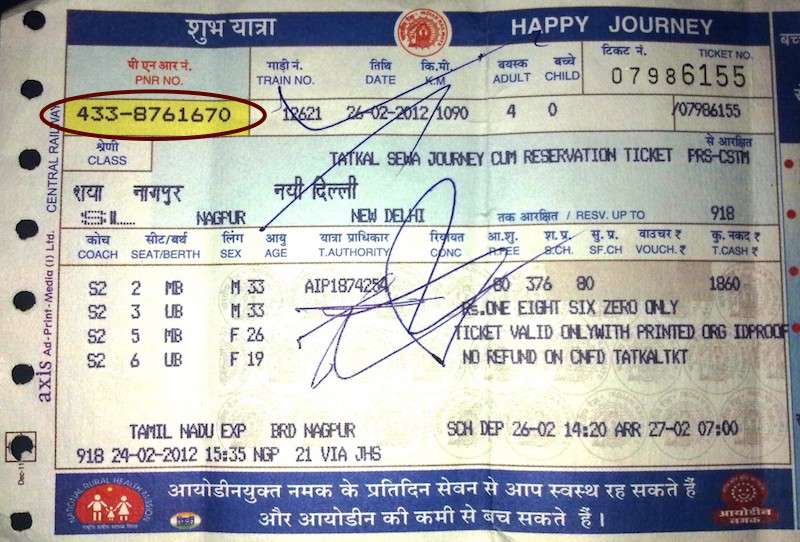 शुभ यात्रा HAPPY JOURNEY
पी एन आर नं. गाड़ी नं. तिथि कि.मी. वयस्क बच्चे टिकट नं. TICKET NO.
PNR NO. TRAIN NO. DATE K.M. ADULT CHILD 07986155
433-8761670 12621 26-02-2012 1090 4 0 /07986155
श्रेणी से आरक्षित
CLASS TATKAL SEWA JOURNEY CUM RESERVATION TICKET PRS-CSTM
शया नागपुर नयी दिल्ली
NAGPUR NEW DELHI तक आरक्षित / RESV. UP TO 918
कोच सीट/बर्थ लिंग आयु यात्रा प्राधिकार रियायत आ.शु. श.प्र. सु.प्र. वाउचर ₹ कु. नकद ₹
COACH SEAT/BERTH SEX AGE T.AUTHORITY CONC R.FEE S.CH. SF.CH VOUCH.₹ T.CASH ₹
S2 2 MB M 33 AIP1874254 80 376 80 1860
S2 3 UB M 33 Rs.ONE EIGHT SIX ZERO ONLY
S2 5 MB F 26 TICKET VALID ONLYWITH PRINTED ORG IDPROOF
S2 6 UB F 19 NO REFUND ON CNFD TATKALTKT
TAMIL NADU EXP BRD NAGPUR SCH DEP 26-02 14:20 ARR 27-02 07:00
918 24-02-2012 15:35 NGP 21 VIA JHS
आयोडीनयुक्त नमक के प्रतिदिन सेवन से आप स्वस्थ रह सकते हैं
और आयोडीन की कमी से बच सकते हैं।
NATIONAL RURAL HEALTH MISSION
आयोडीन
नमक
CENTRAL RAILWAY
axis Ad-Print-Media (I) Ltd.
Dec-11